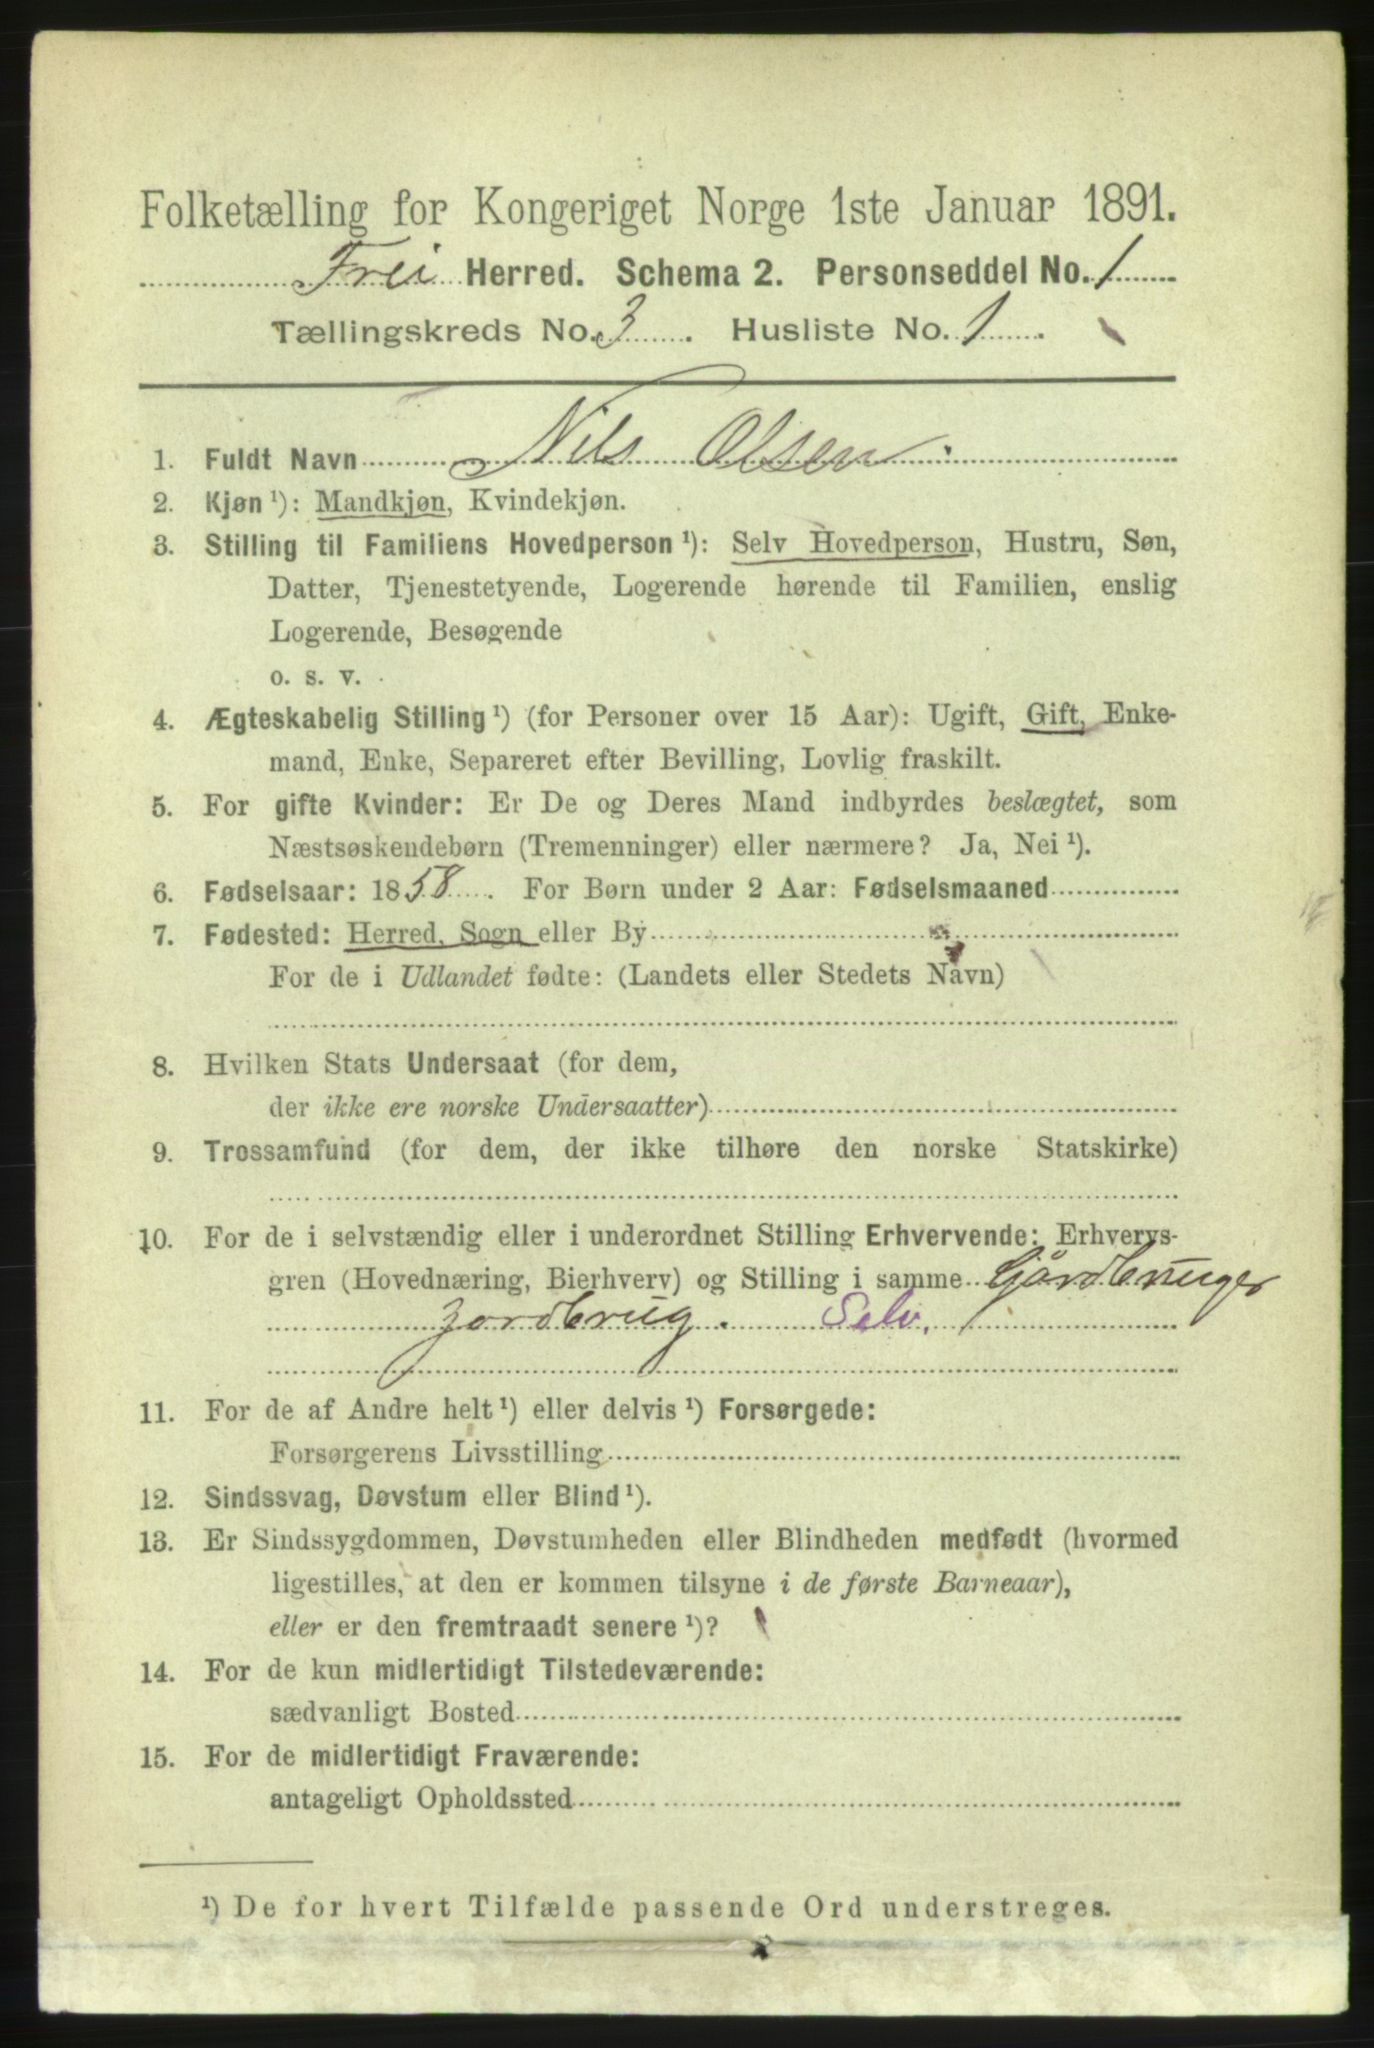 Folketælling for Kongeriget Norge 1ste Januar 1891.
Frei Herred. Schema 2. Personseddel No. 1
Tællingskreds No. 3. Husliste No. 1.
1. Fuldt Navn Nils Olsen
2. Kjøn ¹): Mandkjøn, Kvindekjøn.
3. Stilling til Familiens Hovedperson ¹): Selv Hovedperson, Hustru, Søn,
Datter, Tjenestetyende, Logerende hørende til Familien, enslig
Logerende, Besøgende
o. s. v.
4. Ægteskabelig Stilling ¹) (for Personer over 15 Aar): Ugift, Gift, Enke-
mand, Enke, Separeret efter Bevilling, Lovlig fraskilt.
5. For gifte Kvinder: Er De og Deres Mand indbyrdes beslægtet, som
Næstsøskendebørn (Tremenninger) eller nærmere? Ja, Nei ¹).
6. Fødselsaar: 1858. For Børn under 2 Aar: Fødselsmaaned
7. Fødested: Herred, Sogn eller By
For de i Udlandet fødte: (Landets eller Stedets Navn)
8. Hvilken Stats Undersaat (for dem,
der ikke ere norske Undersaatter)
9. Trossamfund (for dem, der ikke tilhøre den norske Statskirke)
10. For de i selvstændig eller i underordnet Stilling Erhvervende: Erhvervs-
gren (Hovednæring, Bierhverv) og Stilling i samme Gårdbruger
Jordbrug. Selv.
11. For de af Andre helt ¹) eller delvis ¹) Forsørgede:
Forsørgerens Livsstilling
12. Sindssvag, Døvstum eller Blind ¹).
13. Er Sindssygdommen, Døvstumheden eller Blindheden medfødt (hvormed
ligestilles, at den er kommen tilsyne i de første Barneaar),
eller er den fremtraadt senere ¹)?
14. For de kun midlertidigt Tilstedeværende:
sædvanligt Bosted
15. For de midlertidigt Fraværende:
antageligt Opholdssted
¹) De for hvert Tilfælde passende Ord understreges.